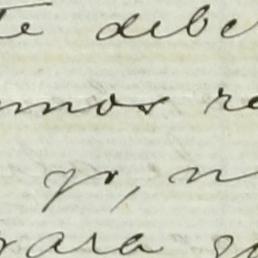 te debe
mos re
yo, n
para